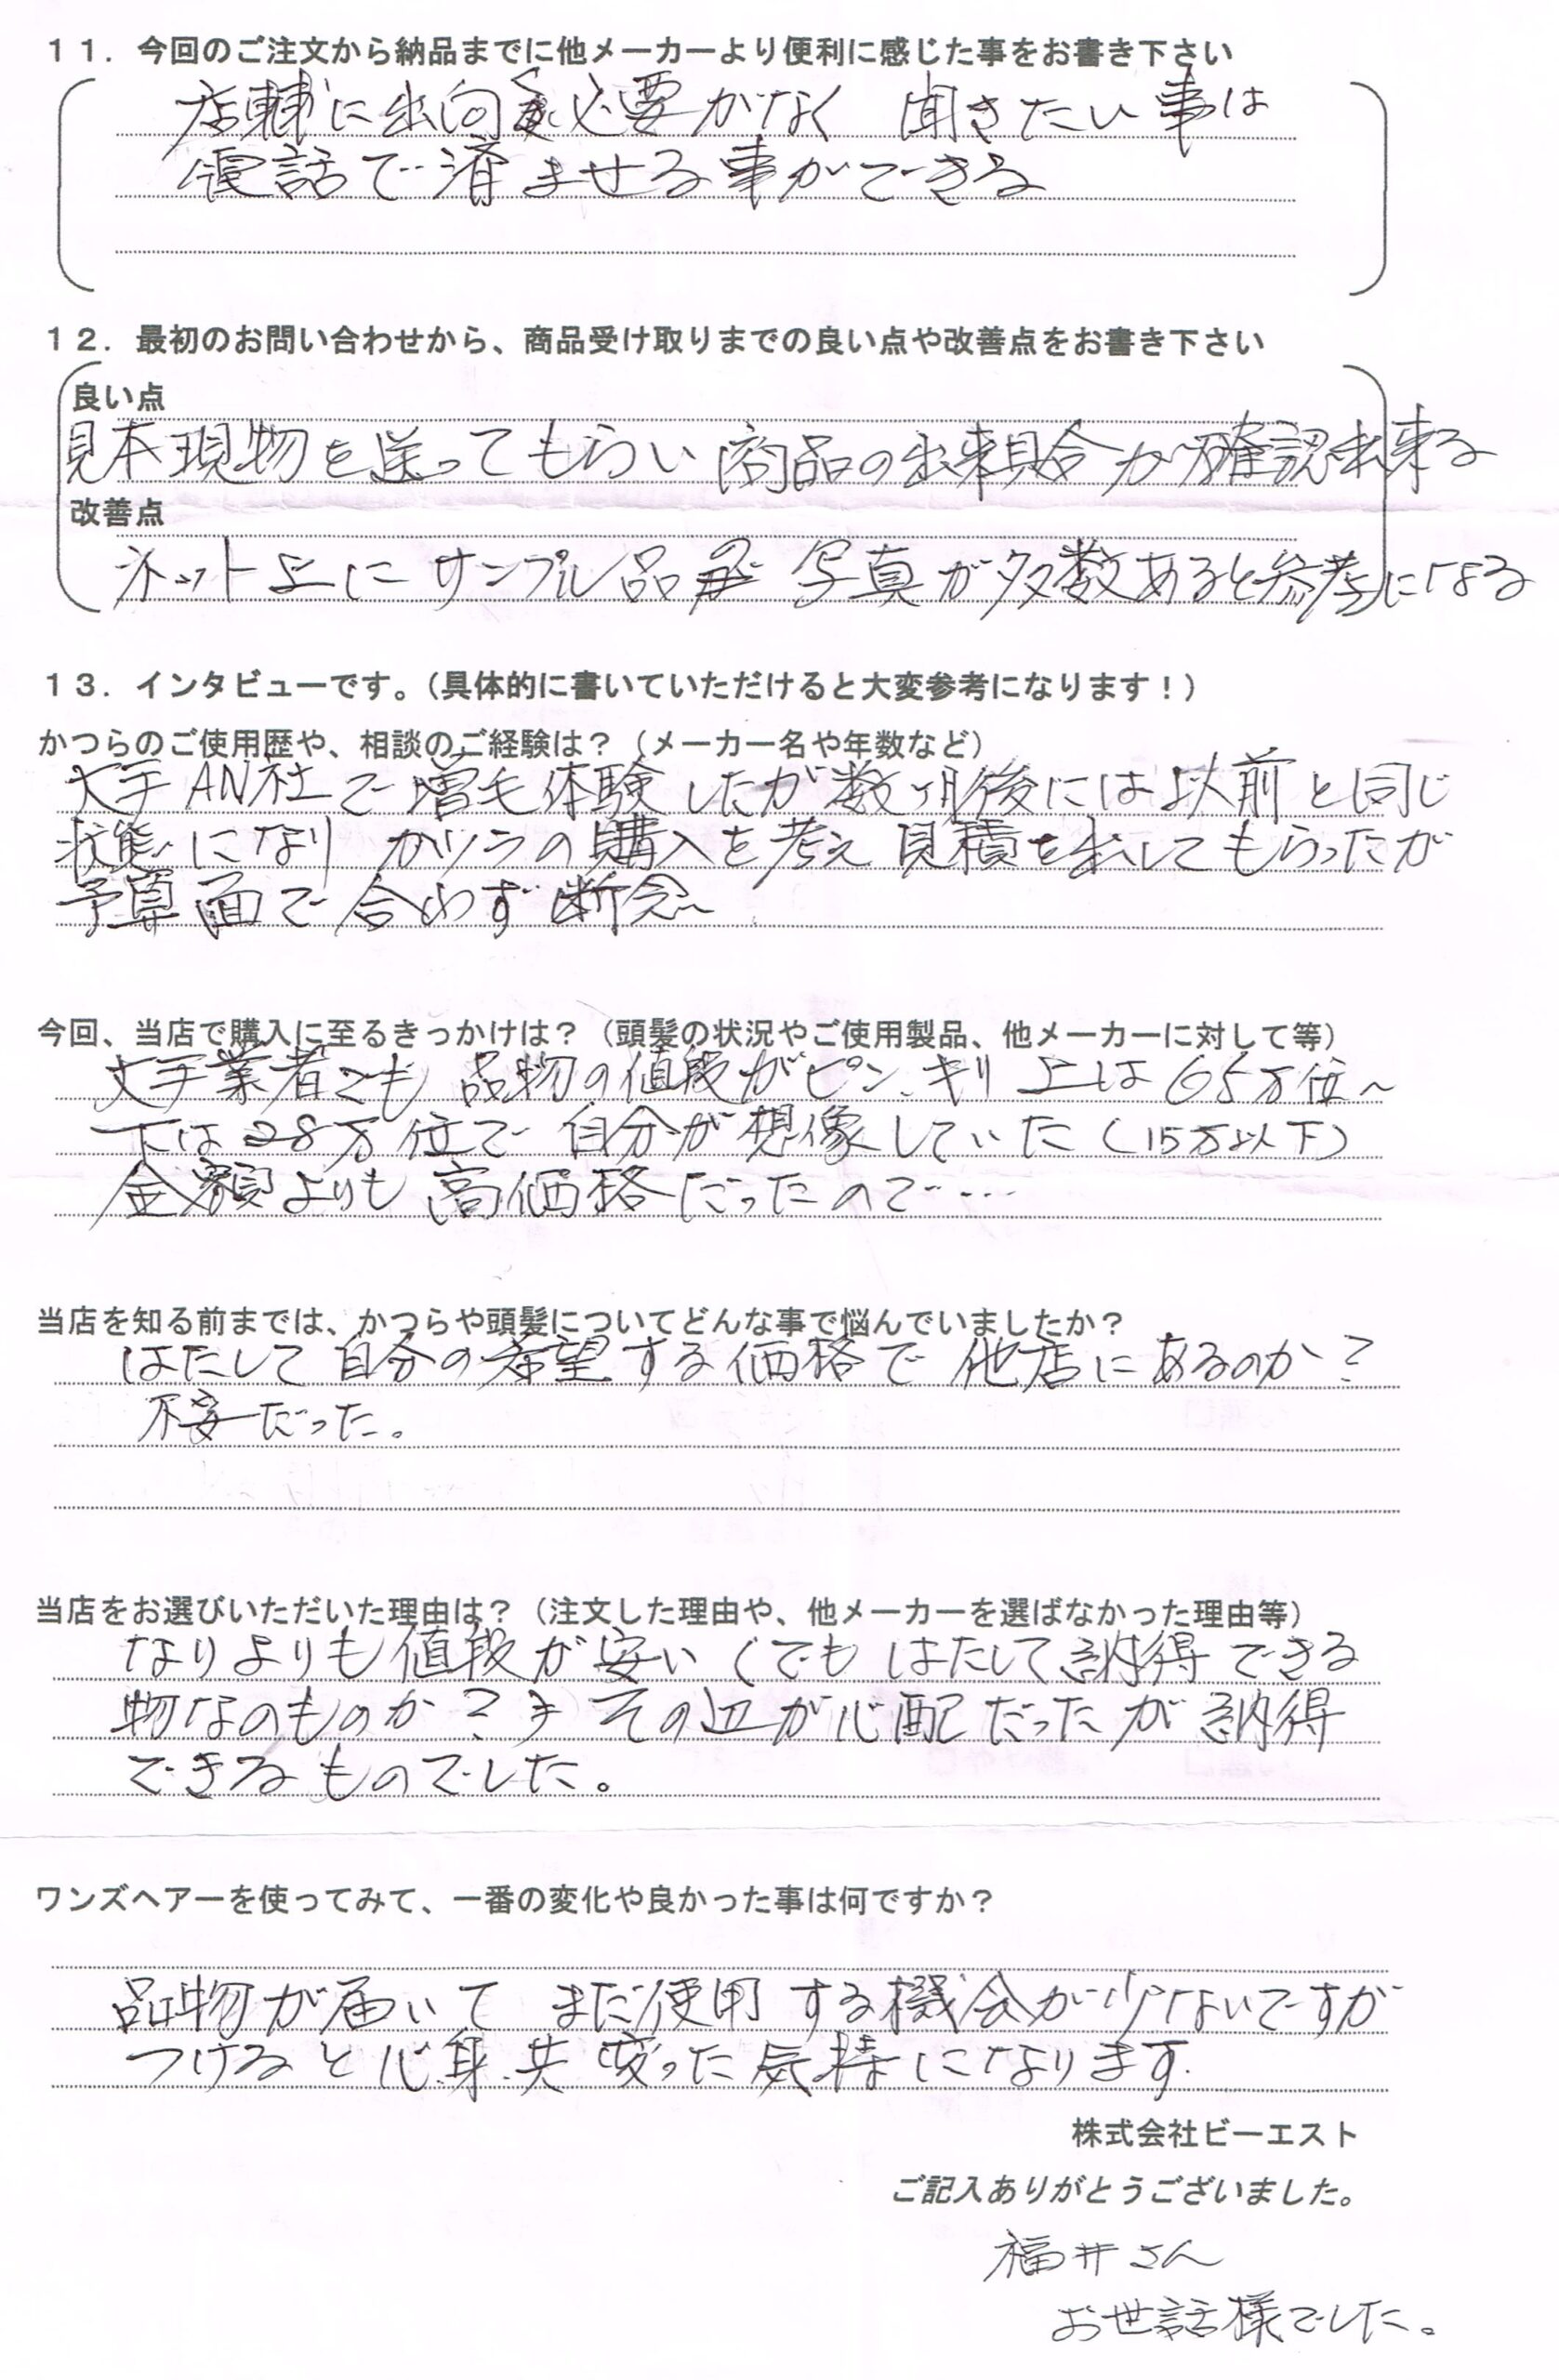 １１．今回のご注文から納品までに他メーカーより便利に感じた事をお書き下さい
店舗に出向く必要がなく 聞きたい事は
電話で済ませる事ができる
１２．最初のお問い合わせから、商品受け取りまでの良い点や改善点をお書き下さい
良い点
見本現物を送ってもらい商品の出来具合が確認出来る
改善点
ネット上にサンプル品 写真が多数あると参考になる
１３．インタビューです。（具体的に書いていただけると大変参考になります！）
かつらのご使用歴や、相談のご経験は？（メーカー名や年数など）
大手AN社で増毛体験したが数ヶ月後には以前と同じ
状態になり カツラの購入を考え見積を出してもらったが
予算面で合わず断念
今回、当店で購入に至るきっかけは？（頭髪の状況やご使用製品、他メーカーに対して等）
大手業者でも 品物の値段がピン、キリ 上は65万位〜
下は28万位で 自分が想像していた（15万以下）
金額よりも高価格だったので…
当店を知る前までは、かつらや頭髪についてどんな事で悩んでいましたか？
はたして自分の希望する価格で 他店にあるのか？
不安だった。
当店をお選びいただいた理由は？（注文した理由や、他メーカーを選ばなかった理由等）
なりよりも値段が安い くでも はたして納得できる
物なのものか？ その辺が心配だったが 納得
できるものでした。
ワンズヘアーを使ってみて、一番の変化や良かった事は何ですか？
品物が届いて まだ使用する機会が少ないですが
つけると心身共変った気持になります.
株式会社ビーエスト
ご記入ありがとうございました。
福井さん
お世話様でした。